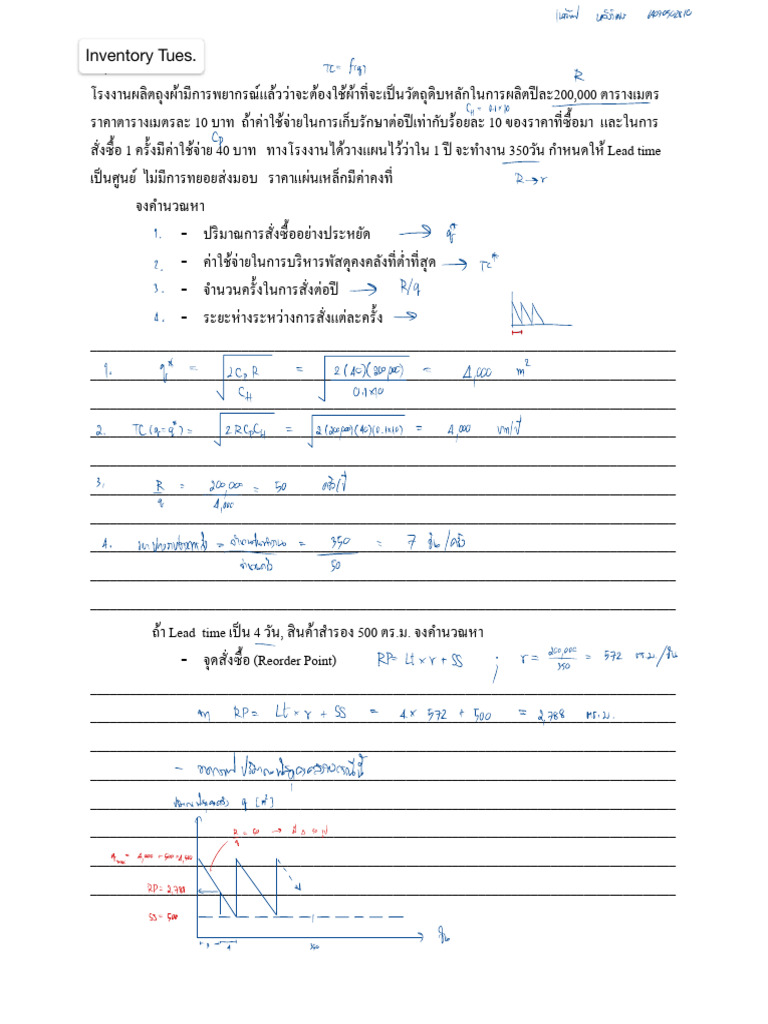 Inventory Tues.
TC = f(q)
R
โรงงานผลิตถุงผ้ามีการพยากรณ์แล้วว่าจะต้องใช้ผ้าที่จะเป็นวัตถุดิบหลักในการผลิตปีละ200,000 ตารางเมตร
C_H = 0.1×10
ราคาตารางเมตรละ 10 บาท ถ้าค่าใช้จ่ายในการเก็บรักษาต่อปีเท่ากับร้อยละ 10 ของราคาที่ซื้อมา และในการ
C_P
สั่งซื้อ 1 ครั้งมีค่าใช้จ่าย 40 บาท ทางโรงงานได้วางแผนไว้ว่าใน 1 ปี จะทำงาน 350วัน กำหนดให้ Lead time
เป็นศูนย์ ไม่มีการทยอยส่งมอบ ราคาแผ่นเหล็กมีค่าคงที่ R→r
จงคำนวณหา
1. - ปริมาณการสั่งซื้ออย่างประหยัด → q*
2. - ค่าใช้จ่ายในการบริหารพัสดุคงคลังที่ต่ำที่สุด → TC*
3. - จำนวนครั้งในการสั่งต่อปี → R/q
4. - ระยะห่างระหว่างการสั่งแต่ละครั้ง →
1. q* = √(2C_P R / C_H) = √(2(40)(200,000) / 0.1×10) = 4,000 m²
2. TC(q=q*) = √(2RC_PC_H) = √(2(200,000)(40)(0.1×10)) = 4,000 บาท/ปี
3. R/q = 200,000/4,000 = 50 ครั้ง/ปี
4. = 350/50 = 7 วัน/ครั้ง
ถ้า Lead time เป็น 4 วัน, สินค้าสำรอง 500 ตร.ม. จงคำนวณหา
- จุดสั่งซื้อ (Reorder Point) RP = Lt × r + SS ; r = 200,000/350 = 572 ตร.ม./วัน
จาก RP = Lt × r + SS = 4 × 572 + 500 = 2,788 ตร.ม.
q [m²]
RP = 2,788
SS = 500
4
350
วัน